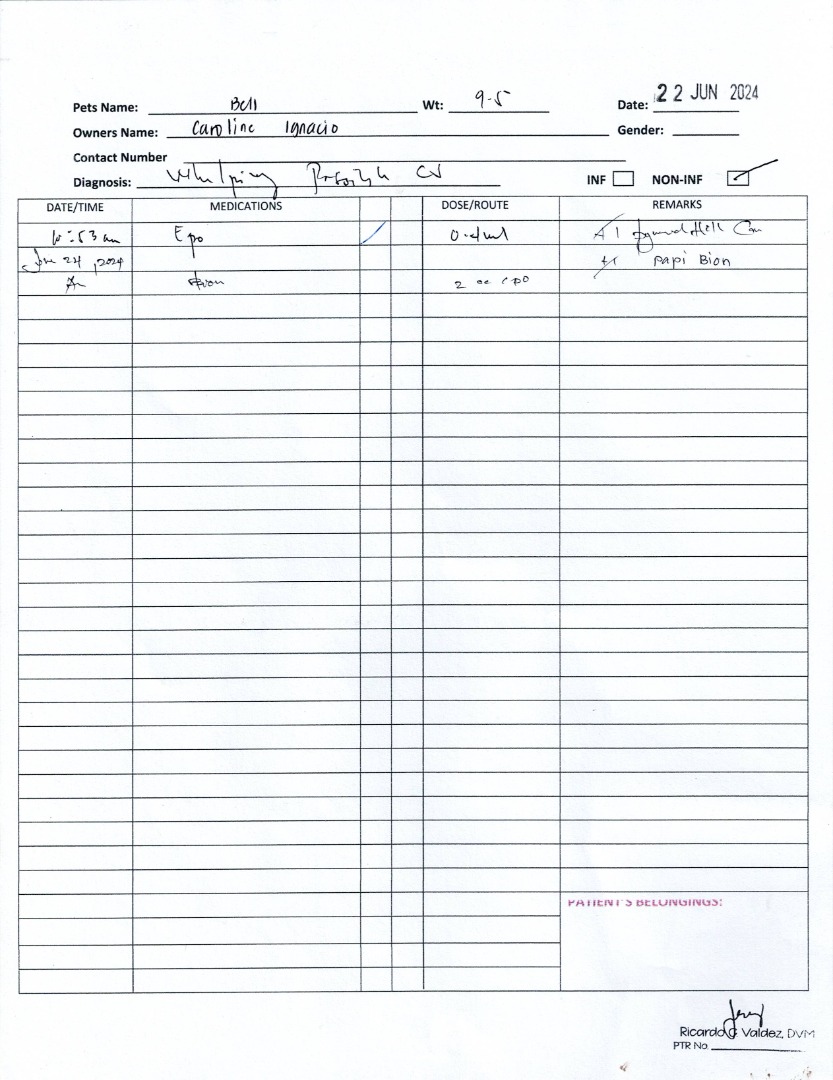 Pets Name: Bell Wt: 9.5 Date: 22 JUN 2024
Owners Name: Caroline Ignacio Gender:
Contact Number
Diagnosis: Whelping CS INF NON-INF
DATE/TIME MEDICATIONS DOSE/ROUTE REMARKS
10:53 am Epo
June 24, 2024 Papi Bion
2 cc
PATIENT'S BELONGINGS:
Ricardo G. Valdez, DVM
PTR No.